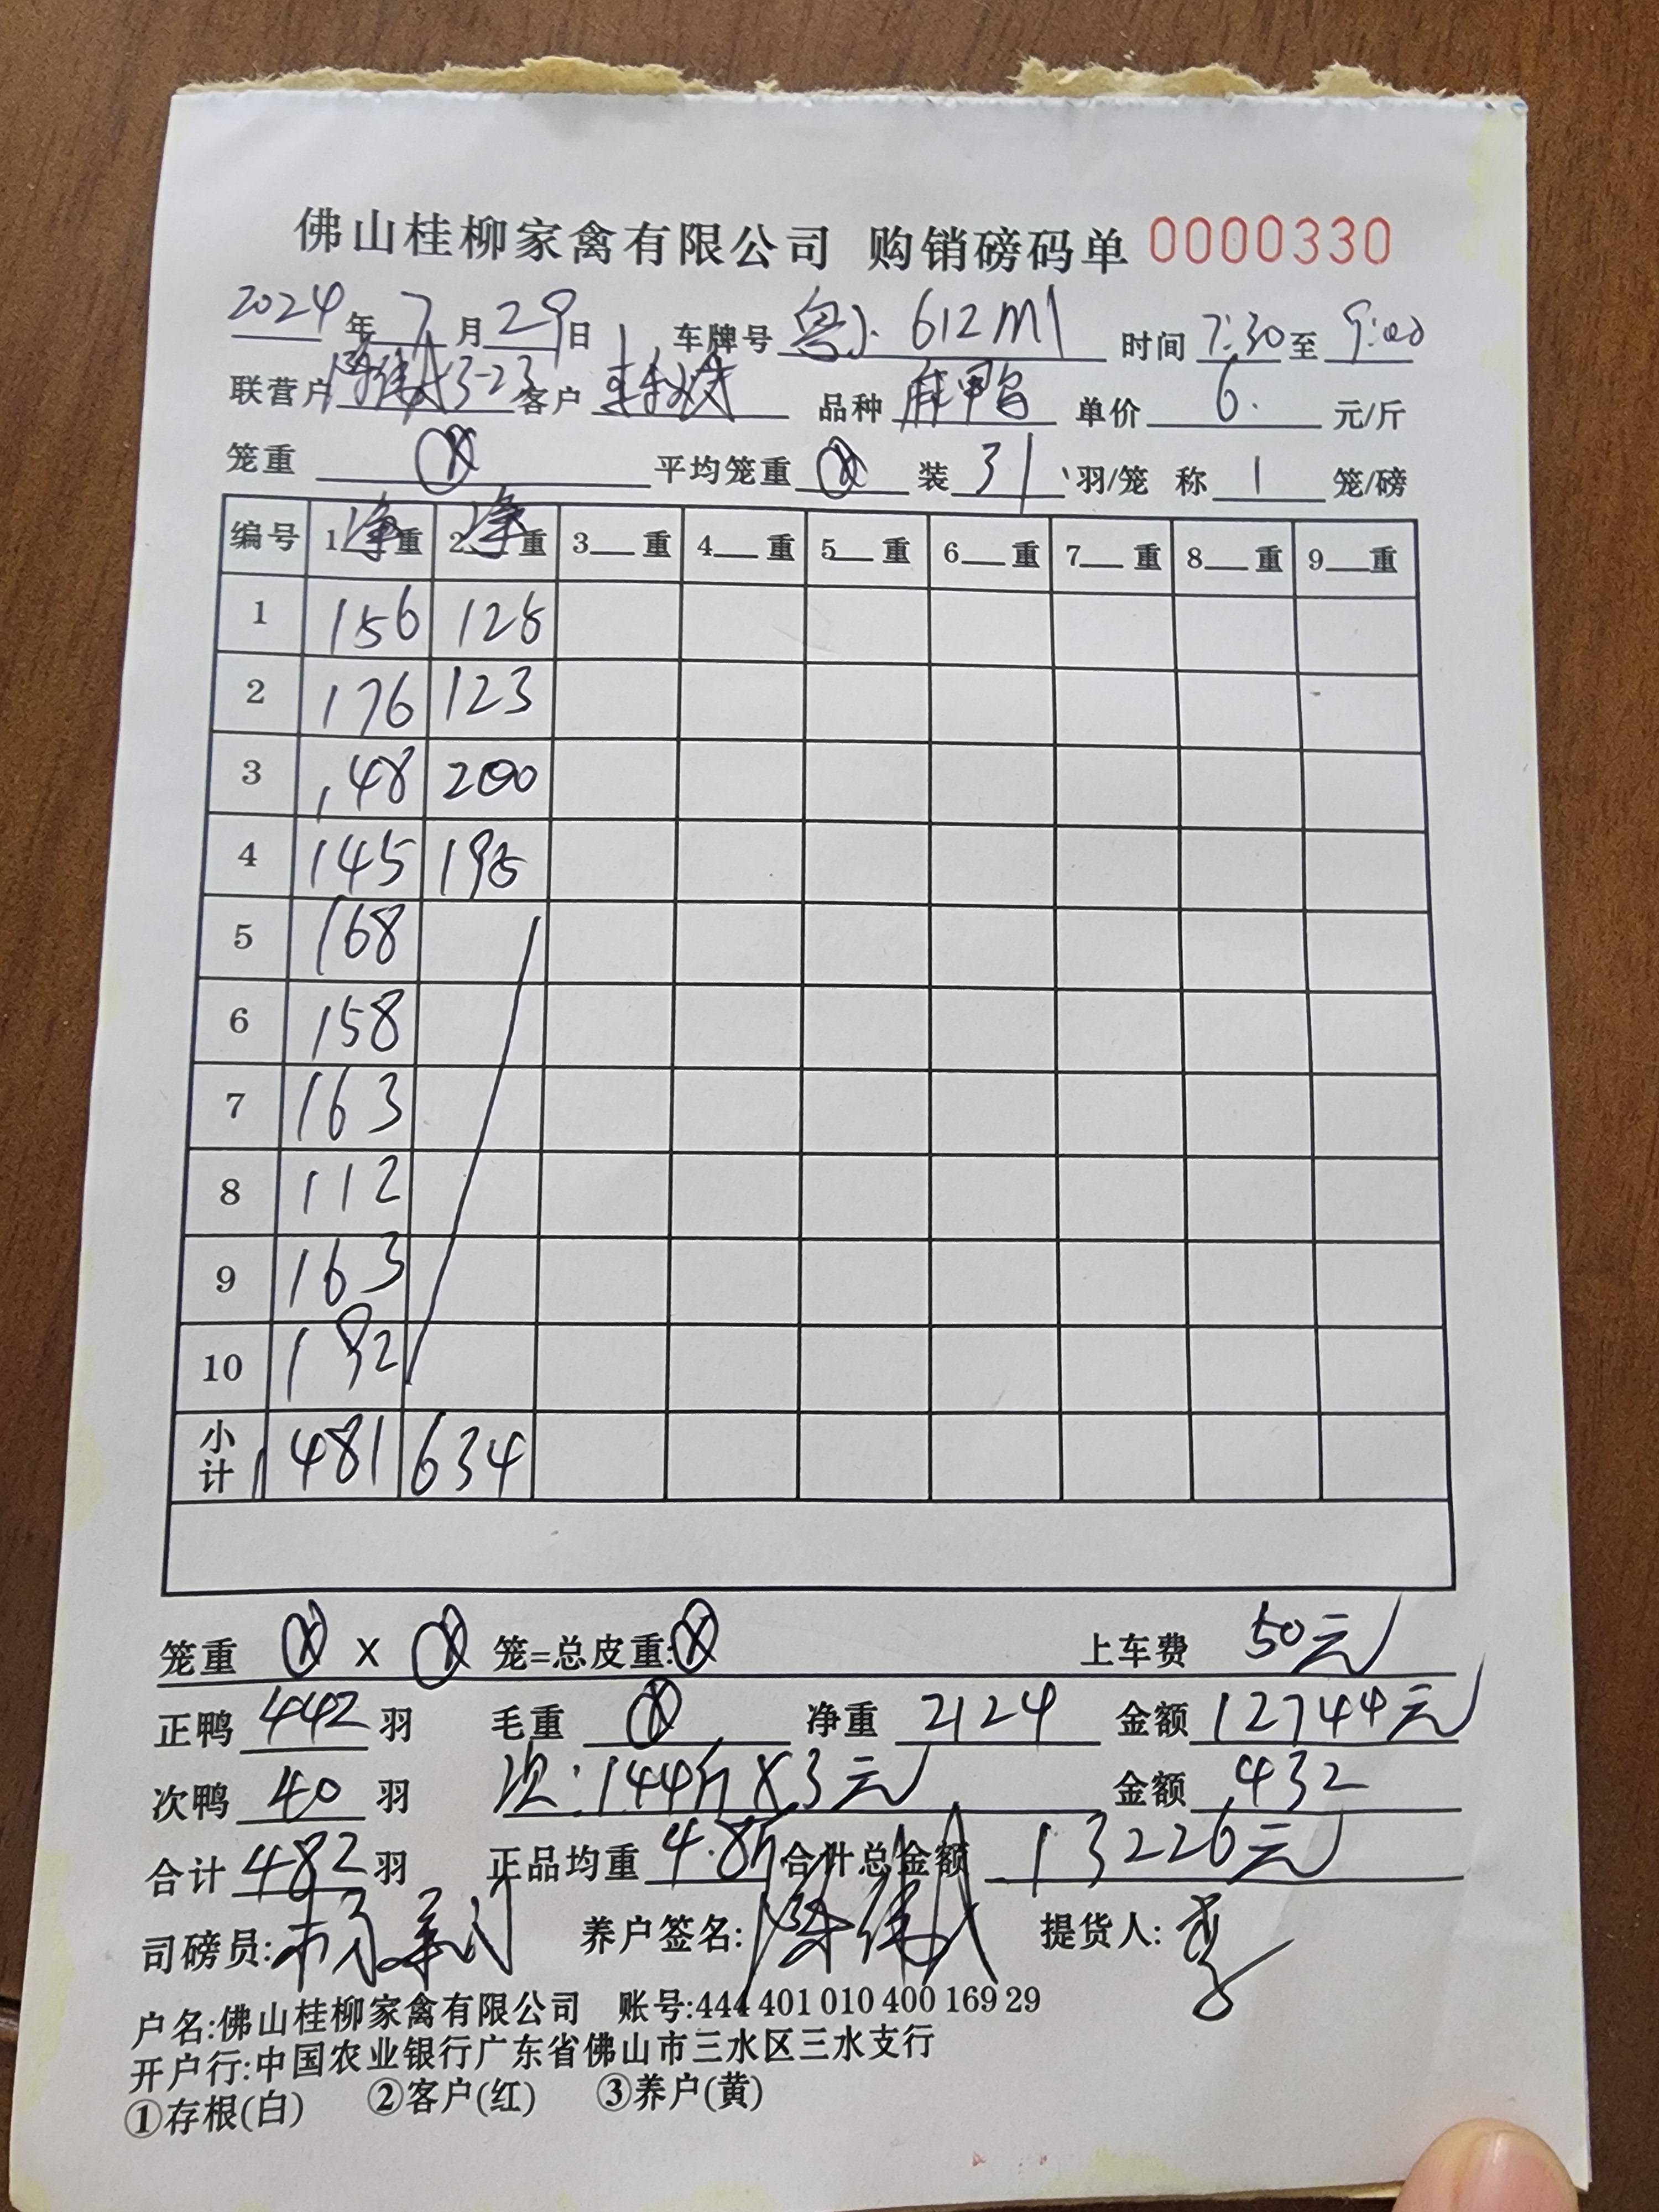 佛山桂柳家禽有限公司 购销磅码单 0000330
2024年7月29日 车牌号 粤J·612M1 时间 7:30至9:00
联营户 陈伟斌3-23 客户 品种 麻鸭 单价 6. 元/斤
笼重 ⊗ 平均笼重 ⊗ 装 31 羽/笼 称 1 笼/磅
编号 1净重 2净重 3__重 4__重 5__重 6__重 7__重 8__重 9__重
1 156 126
2 176 123
3 148 200
4 145 195
5 168
6 158
7 163
8 112
9 163
10 192
小计 1481 634
笼重 ⊗ X ⊗ 笼=总皮重:⊗ 上车费 50元
正鸭 442 羽 毛重 ⊗ 净重 2124 金额 12744元
次鸭 40 羽 次:144斤X3元 金额 432
合计 482 羽 正品均重 4.8斤 合计总金额 13226元
司磅员: 养户签名: 陈伟斌 提货人:
户名:佛山桂柳家禽有限公司 账号:444 401 010 400 169 29
开户行:中国农业银行广东省佛山市三水区三水支行
①存根(白) ②客户(红) ③养户(黄)